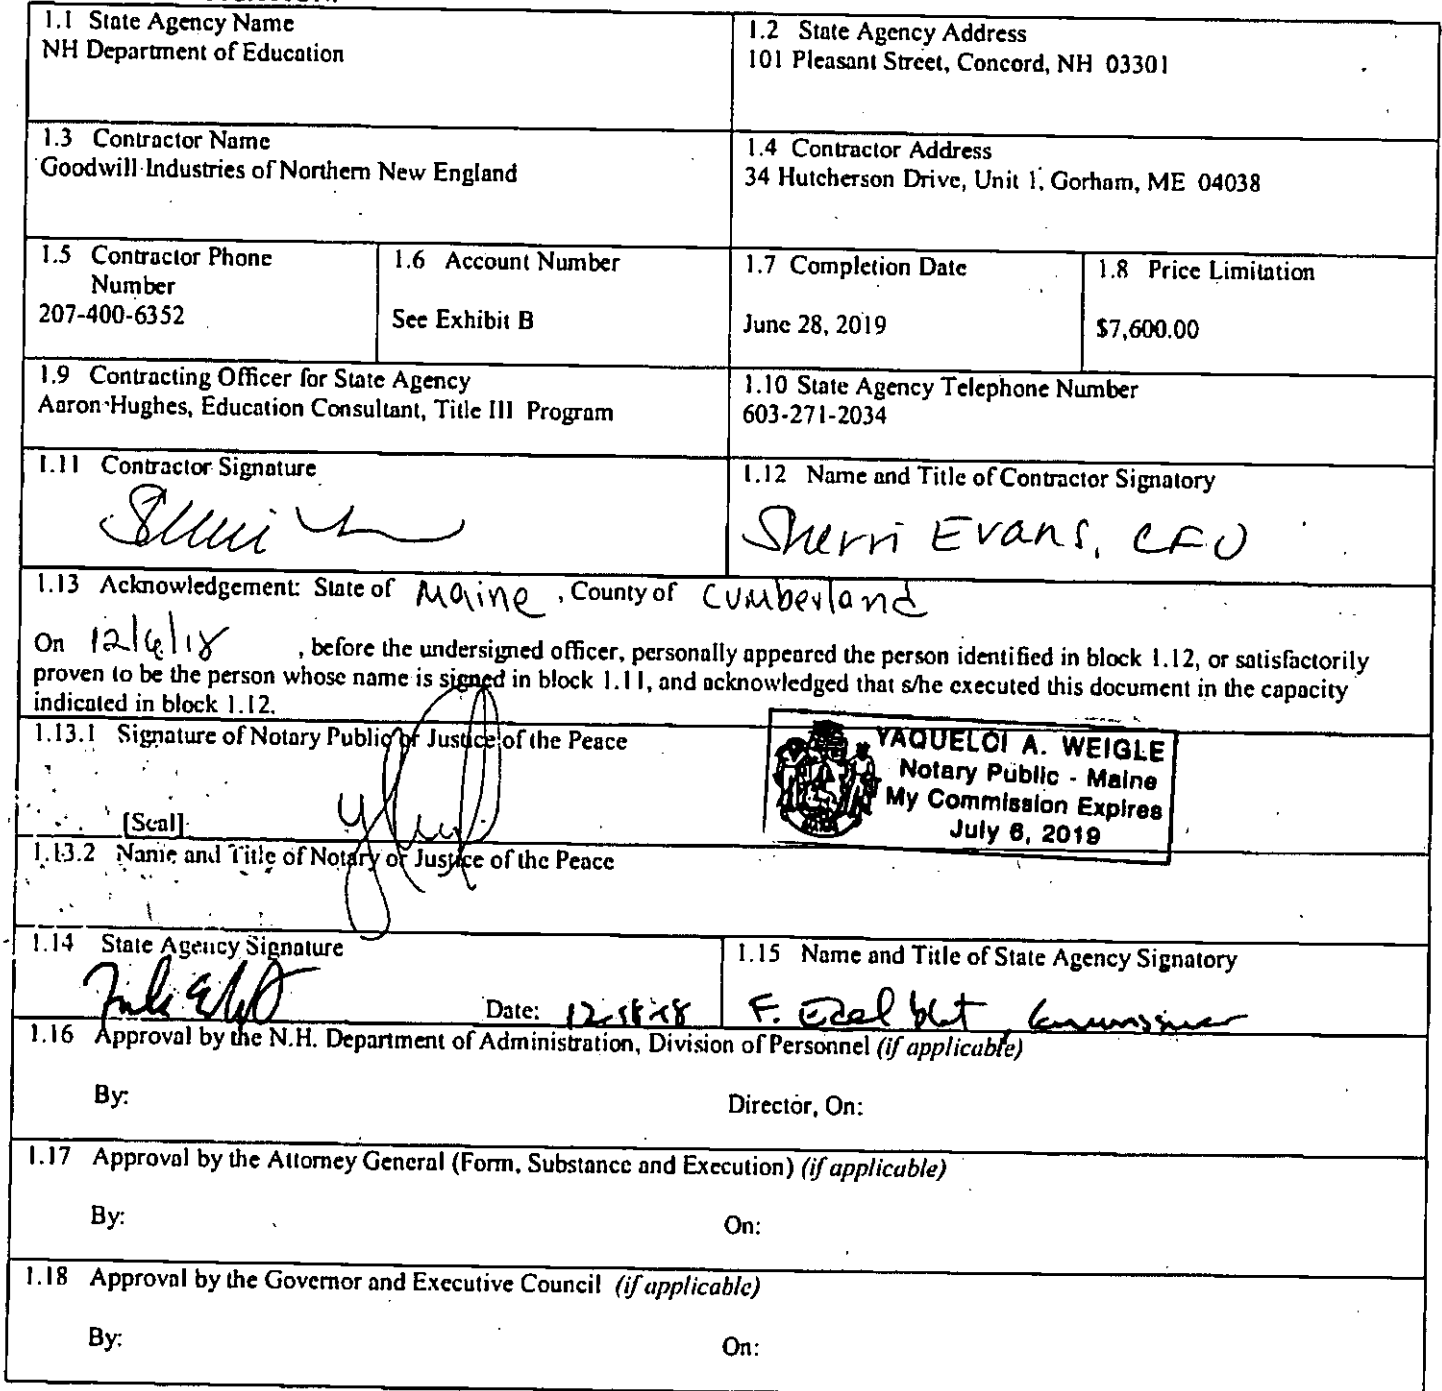 1.1 State Agency Name
NH Department of Education
1.2 State Agency Address
101 Pleasant Street, Concord, NH 03301
1.3 Contractor Name
Goodwill Industries of Northern New England
1.4 Contractor Address
34 Hutcherson Drive, Unit 1, Gorham, ME 04038
1.5 Contractor Phone
Number
207-400-6352
1.6 Account Number
See Exhibit B
1.7 Completion Date
June 28, 2019
1.8 Price Limitation
$7,600.00
1.9 Contracting Officer for State Agency
Aaron Hughes, Education Consultant, Title III Program
1.10 State Agency Telephone Number
603-271-2034
1.11 Contractor Signature
1.12 Name and Title of Contractor Signatory
Sherri Evans, CFO
1.13 Acknowledgement: State of Maine, County of Cumberland
On 12/6/18, before the undersigned officer, personally appeared the person identified in block 1.12, or satisfactorily
proven to be the person whose name is signed in block 1.11, and acknowledged that s/he executed this document in the capacity
indicated in block 1.12.
1.13.1 Signature of Notary Public or Justice of the Peace
[Seal]
YAQUELOI A. WEIGLE
Notary Public - Maine
My Commission Expires
July 6, 2019
1.13.2 Name and Title of Notary or Justice of the Peace
1.14 State Agency Signature
Date: 12-18-18
1.15 Name and Title of State Agency Signatory
F. Edelblut, Commissioner
1.16 Approval by the N.H. Department of Administration, Division of Personnel (if applicable)
By: Director, On:
1.17 Approval by the Attorney General (Form, Substance and Execution) (if applicable)
By: On:
1.18 Approval by the Governor and Executive Council (if applicable)
By: On: